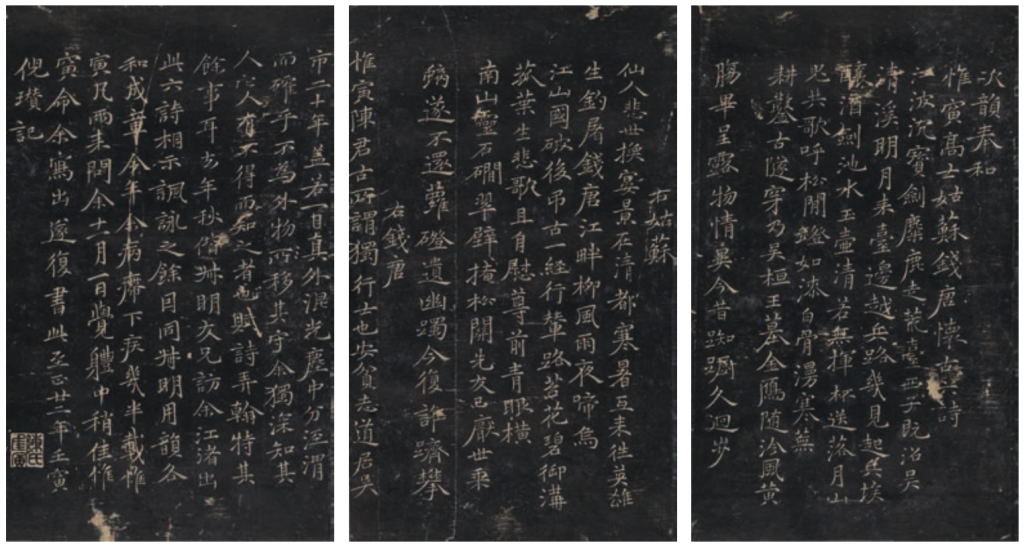 次韻奉和
惟寅高士姑蘇錢唐懷古詩
江波沉寶劍麋鹿走荒臺西子既沼吳
清溪明月來臺邊越兵路幾見起吳埃
釀酒劍池水玉壺清若無揮杯送落月山
鬼共歌呼松間鐙如漆白骨漫寒蕪
耕鑿古隧穿乃吳桓王墓金雁隨冶風黃
腸畢呈露物情異今昔踟躕久迴步
右姑蘇
仙人悲世換宴景在清都寒暑互來往英雄
生釣屠錢唐江畔柳風雨夜啼烏
江山國破後弔古一經行輦路苔花碧御溝
菰葉生悲歌且自慰尊前青眼橫
南山靈石磵翠壁掩松關先友已厭世乘
鸞遂不還蘿磴遺幽躅今復許躋攀
右錢唐
惟寅陳君古所謂獨行士也安貧志道居吳
市二十年蓋若一日其外混光塵中分涇渭
而確乎不為外物所移其守余獨深知其
人它人有不得而知之者也賦詩弄翰特其
餘事耳去年秋偕叔明友兄訪余江渚出
此六詩相示諷詠之餘因同叔明用韻各
和成章今年余病滯下疾幾半載惟
寅凡兩來問今十一月一日覺體中稍佳惟
寅命余寫出遂復書此至正廿二年壬寅
倪瓚記